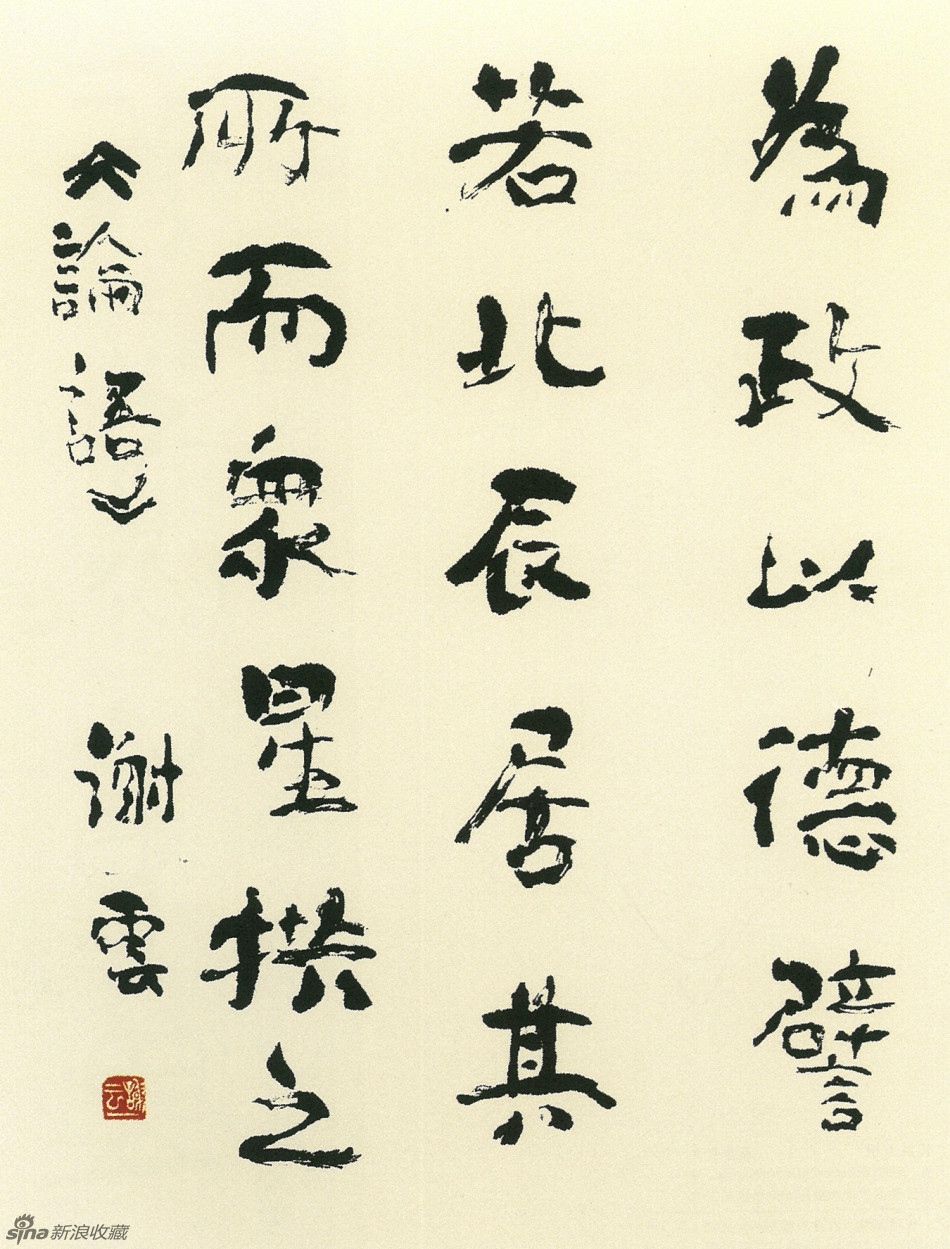 為政以德譬
若北辰居其
所而眾星拱之
《論語》 謝雲
謝云
sina新浪收藏